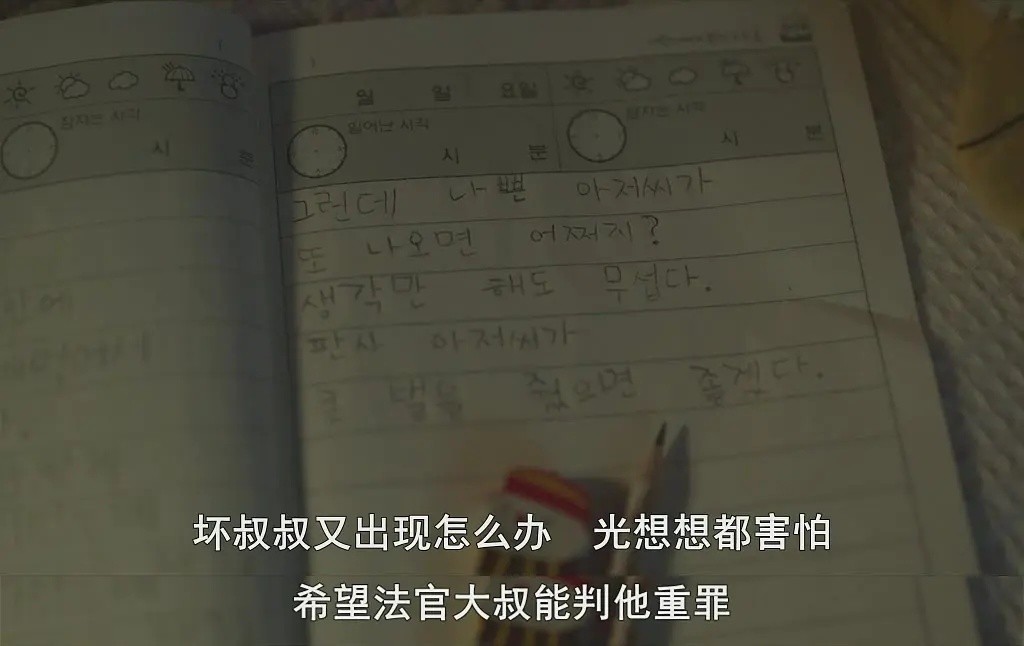 잠자는 시각
시 분
일 요일
일어난 시각
시 분
잠자는 시각
시 분
그런데 나쁜 아저씨가
또 나오면 어쩌지?
생각만 해도 무섭다.
판사 아저씨가
큰 벌을 줬으면 좋겠다.
坏叔叔又出现怎么办 光想想都害怕
希望法官大叔能判他重罪